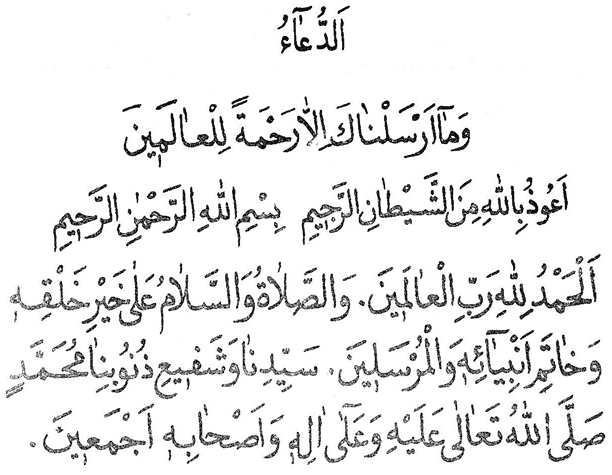 اَلدُّعَاءُ
وَمَآ اَرْسَلْنَاكَ اِلَّا رَحْمَةً لِلْعَالَمٖينَ
اَعُوذُ بِاللهِ مِنَ الشَّيْطَانِ الرَّجٖيمِ بِسْمِ اللهِ الرَّحْمٰنِ الرَّحٖيمِ
اَلْحَمْدُ لِلهِ رَبِّ الْعَالَمٖينَ. وَالصَّلَاةُ وَالسَّلَامُ عَلٰى خَيْرِ خَلْقِهٖ
وَخَاتِمِ اَنْبِيَآئِهٖ وَالْمُرْسَلٖينَ. سَيِّدِنَا وَشَفٖيعِ ذُنُوبِنَا مُحَمَّدٍ
صَلَّى اللهُ تَعَالٰى عَلَيْهِ وَعَلٰٓى اٰلِهٖ وَاَصْحَابِهٖ اَجْمَعٖينَ.